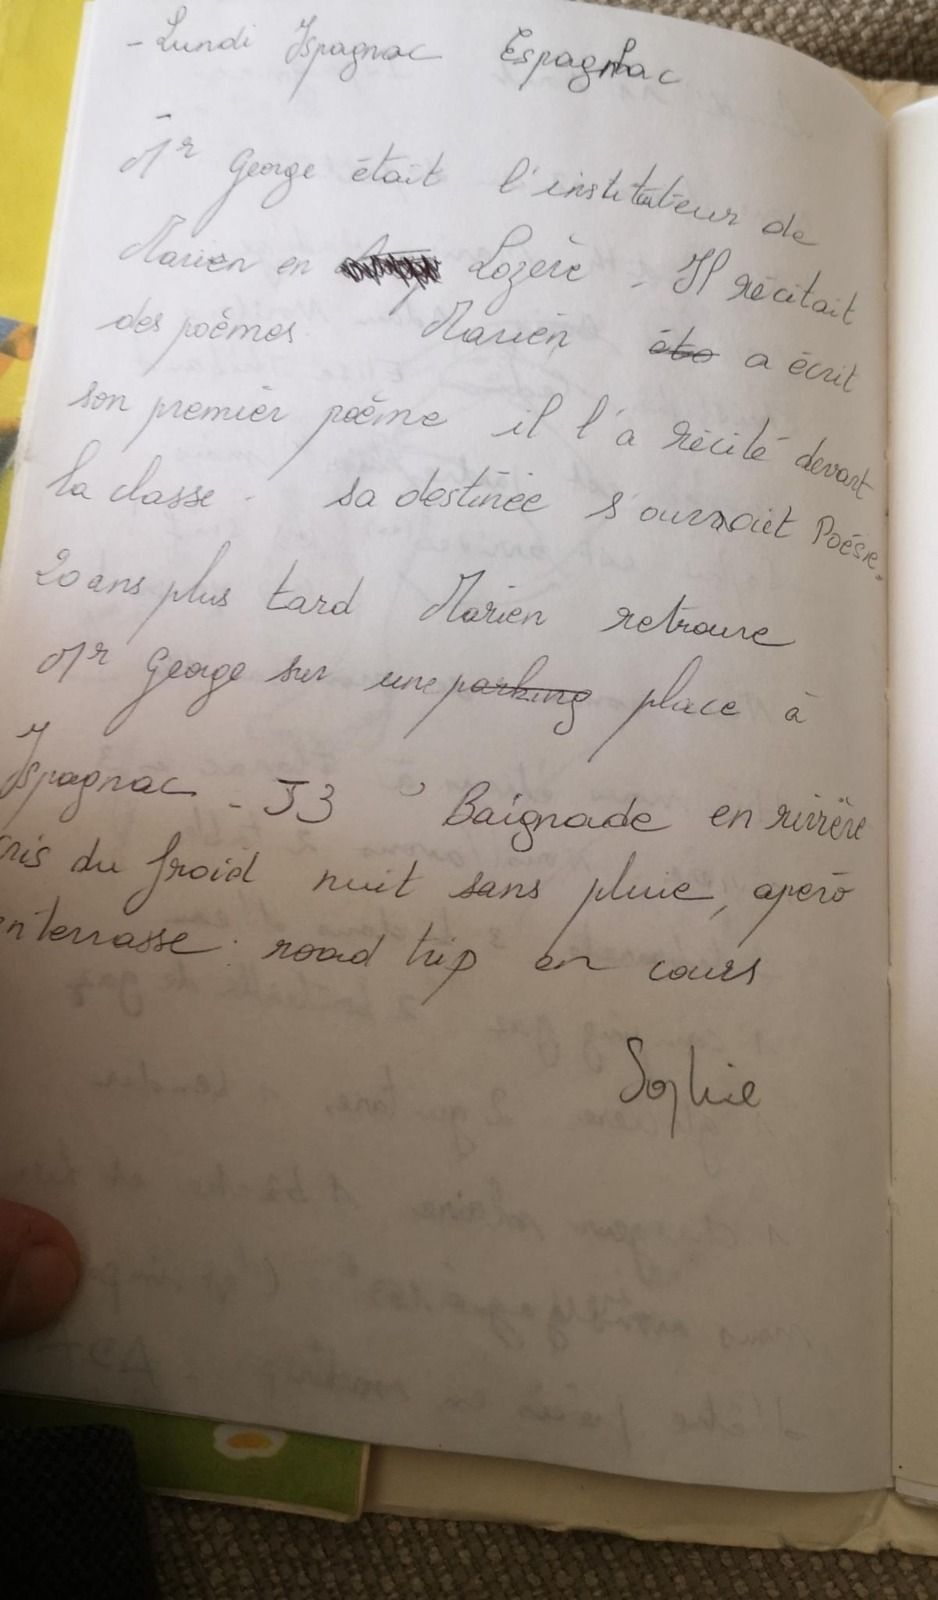 - Lundi Ispagnac Espagnac
- Mr George était l'instituteur de
Marien en Lozère. Il récitait
des poèmes Marien a écrit
son premier poème il l'a récité devant
la classe. sa destinée s'ouvrait Poésie.
20 ans plus tard Marien retrouve
Mr George sur une parking place à
Ispagnac - J3 Baignade en rivière
cris du froid nuit sans pluie, apéro
en terrasse. road trip en cours
Sophie